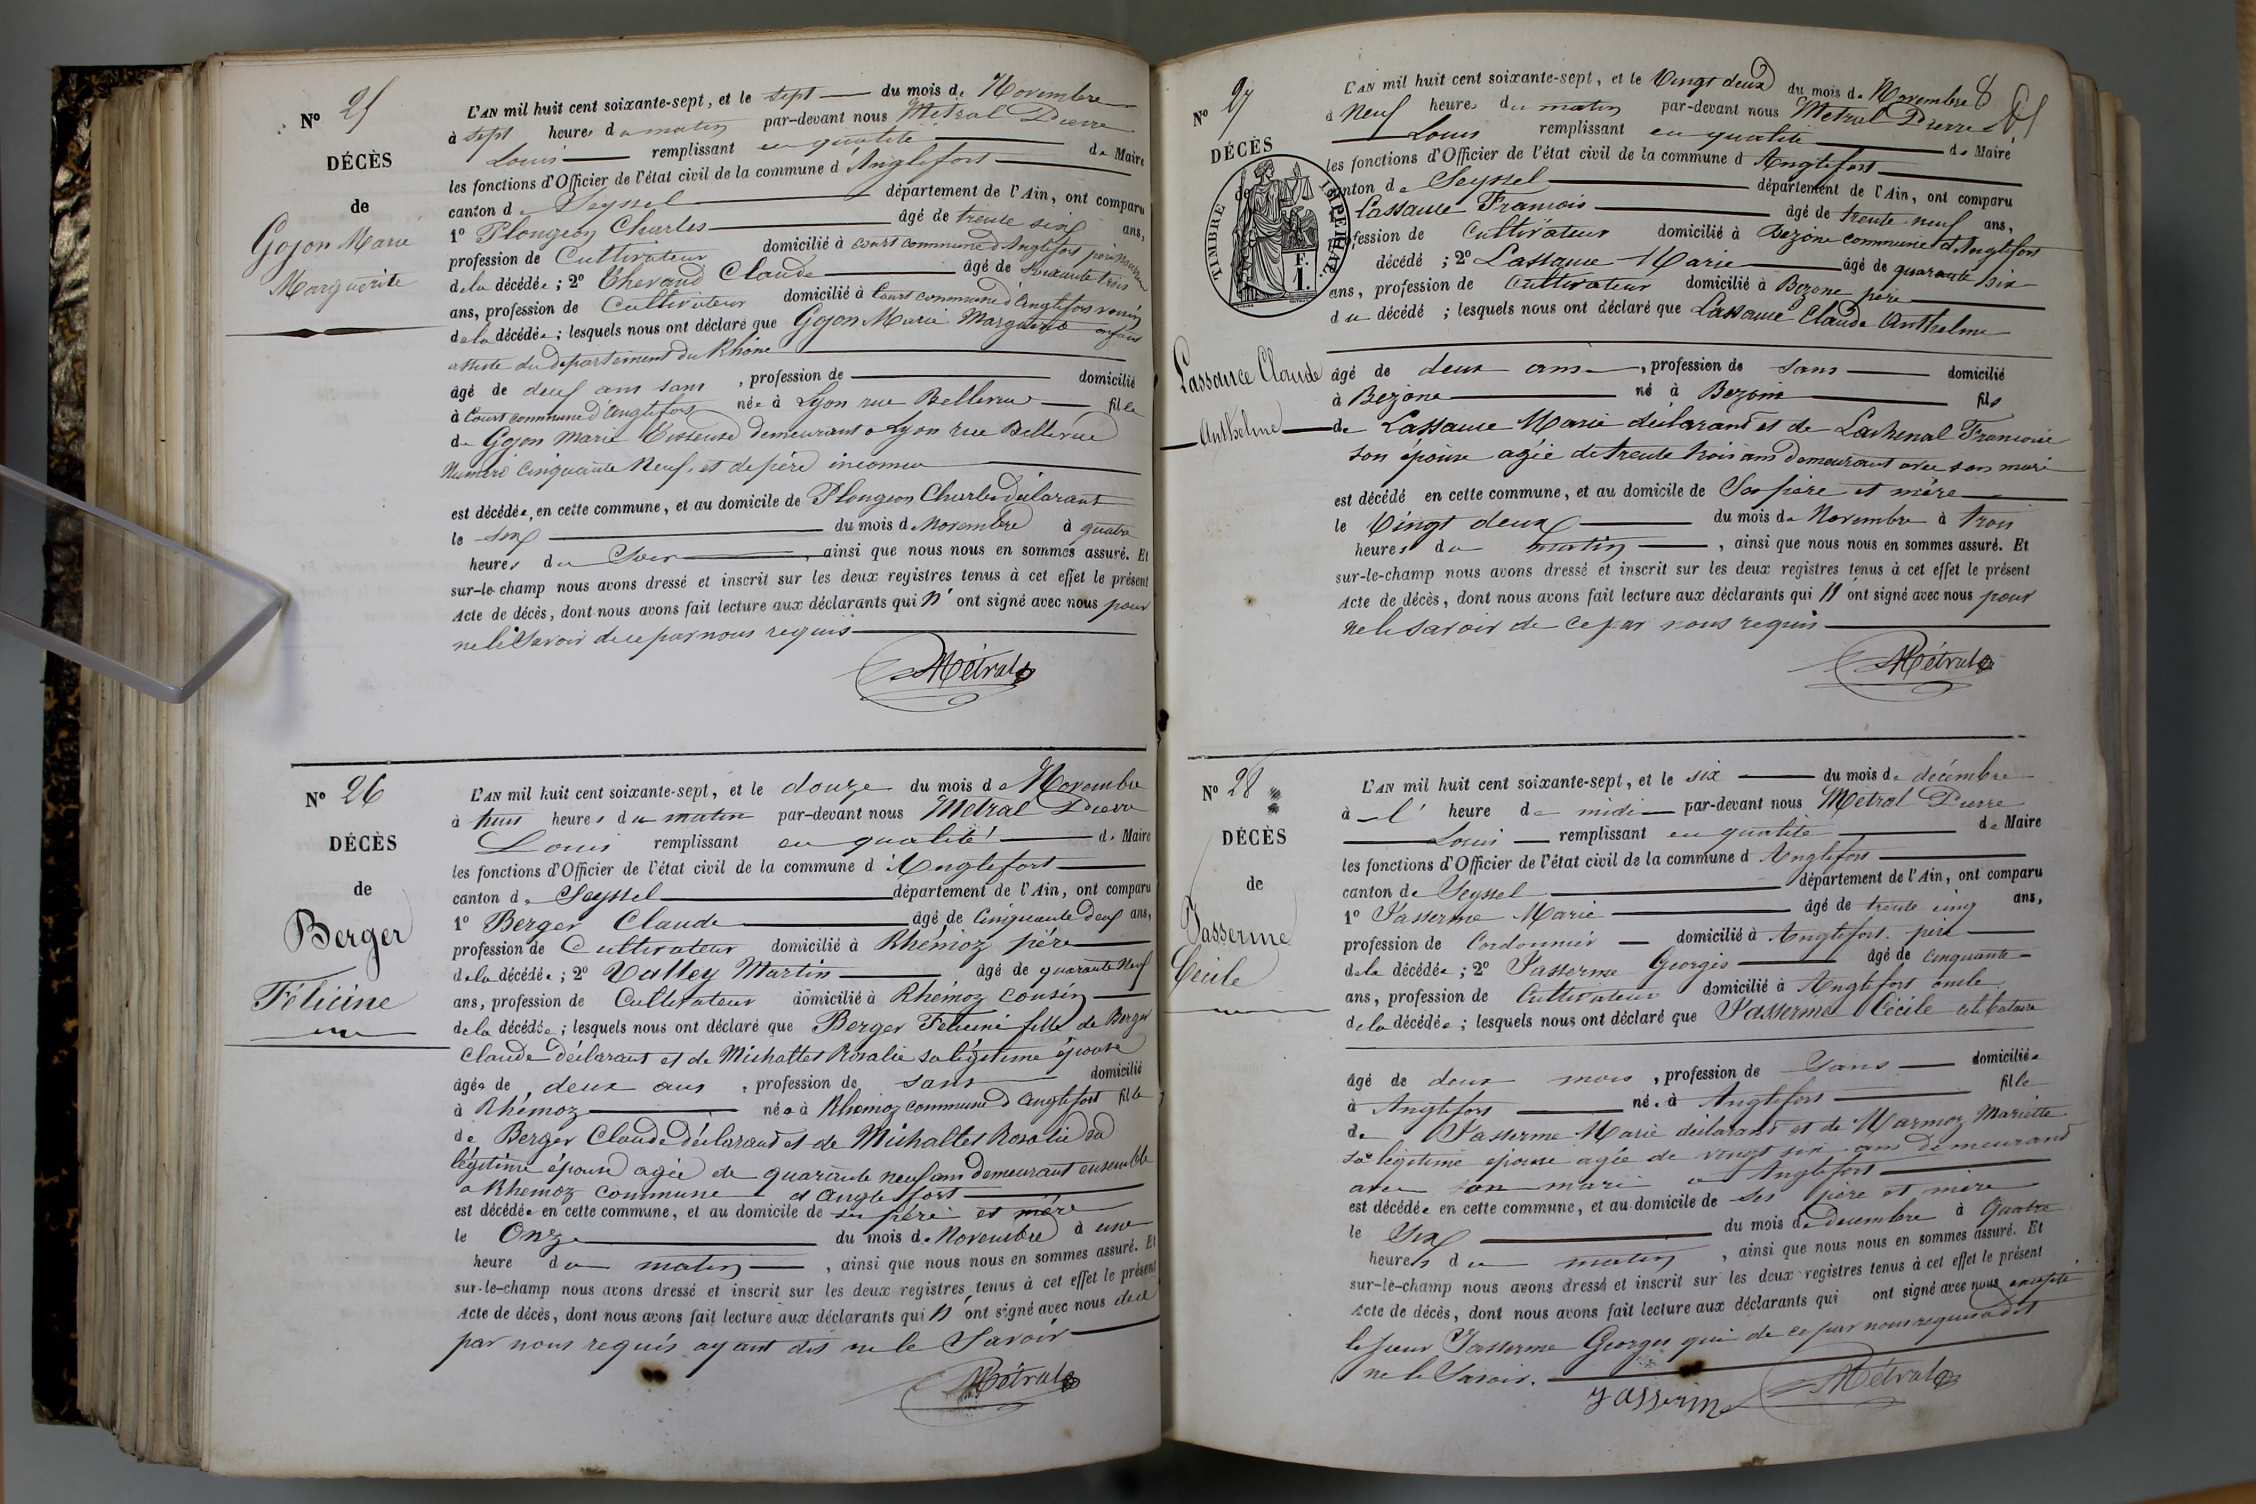 Nº 25
DÉCÈS
de
Gojon Marie
Marguerite
L'AN mil huit cent soixante-sept, et le sept du mois de Novembre
à sept heures du matin par-devant nous Métral Pierre
Louis remplissant en qualité de Maire
les fonctions d'Officier de l'état civil de la commune d'Anglefort
canton de Seyssel département de l'Ain, ont comparu
1º Plongeon Charles âgé de trente six ans,
profession de Cultivateur domicilié à Court commune d'Anglefort père nourricier
de la décédée ; 2º Chevaud Claude âgé de soixante trois
ans, profession de Cultivateur domicilié à Court commune d'Anglefort voisin
de la décédée ; lesquels nous ont déclaré que Gojon Marie Marguerite enfant
assisté du département du Rhône
âgé de deux ans sans , profession de domicilié
à Court commune d'Anglefort née à Lyon rue Bellevue fille
de Gojon Marie Tisseuse demeurant à Lyon rue Bellevue
Numéro Cinquante Neuf, et de père inconnu
est décédée, en cette commune, et au domicile de Plongeon Charles déclarant
le six du mois de Novembre à quatre
heures du Soir , ainsi que nous nous en sommes assuré. Et
sur-le-champ nous avons dressé et inscrit sur les deux registres tenus à cet effet le présent
Acte de décès, dont nous avons fait lecture aux déclarants qui N' ont signé avec nous pour
ne le Savoir de ce par nous requis
Métral
Nº 26
DÉCÈS
de
Berger
Félicine
L'AN mil huit cent soixante-sept, et le douze du mois de Novembre
à huit heures du matin par-devant nous Métral Pierre
Louis remplissant en qualité de Maire
les fonctions d'Officier de l'état civil de la commune d'Anglefort
canton de Seyssel département de l'Ain, ont comparu
1º Berger Claude âgé de Cinquante deux ans,
profession de Cultivateur domicilié à Rhémoz père
de la décédée ; 2º Valley Martin âgé de quarante Neuf
ans, profession de Cultivateur domicilié à Rhémoz cousin
de la décédée ; lesquels nous ont déclaré que Berger Félicine fille de Berger
Claude déclarant et de Michallet Rosalie sa légitime épouse
âgée de deux ans , profession de sans domicilié
à Rhémoz née à Rhemoz commune d'Anglefort fille
de Berger Claude déclarant et de Michallet Rosalie sa
légitime épouse agée de quarante neuf ans demeurant ensemble
a Rhemoz commune d'Anglefort
est décédée en cette commune, et au domicile de ses père et mère
le Onze du mois de Novembre à une
heure du matin , ainsi que nous nous en sommes assuré. Et
sur-le-champ nous avons dressé et inscrit sur les deux registres tenus à cet effet le présent
Acte de décès, dont nous avons fait lecture aux déclarants qui N' ont signé avec nous de ce
par nous requis ayant dit ne le Savoir
Métral
Nº 27
DÉCÈS
de
TIMBRE IMPERIAL
F.
1.
Lassauce Claude
Anthelme
L'AN mil huit cent soixante-sept, et le Vingt deux du mois de Novembre 8
à Neuf heures du matin par-devant nous Métral Pierre
Louis remplissant en qualité de Maire
les fonctions d'Officier de l'état civil de la commune d'Anglefort
canton de Seyssel département de l'Ain, ont comparu
Lassauce Francois âgé de trente neuf ans,
profession de Cultivateur domicilié à Bezóne commune d'Anglefort
décédé ; 2º Lassauce Marie âgé de quarante six
ans, profession de Cultivateur domicilié à Bezone père
du décédé ; lesquels nous ont déclaré que Lassauce Claude Anthelme
âgé de deux ans , profession de sans domicilié
à Bezóne né à Bezone fils
de Lassauce Marie déclarant et de Lachenal Francoise
son épouse agée de trente trois ans demeurant avec son mari
est décédé en cette commune, et au domicile de Ses père et mère
le Vingt deux du mois de Novembre à trois
heures du matin , ainsi que nous nous en sommes assuré. Et
sur-le-champ nous avons dressé et inscrit sur les deux registres tenus à cet effet le présent
Acte de décès, dont nous avons fait lecture aux déclarants qui N' ont signé avec nous pour
ne le savoir de ce par nous requis
Métral
Nº 28
DÉCÈS
de
Jasserme
Cécile
L'AN mil huit cent soixante-sept, et le six du mois de décembre
à l' heure de midi par-devant nous Métral Pierre
Louis remplissant en qualité de Maire
les fonctions d'Officier de l'état civil de la commune d'Anglefort
canton de Seyssel département de l'Ain, ont comparu
1º Jasserme Marie âgé de trente cinq ans,
profession de Cordonnier domicilié à Anglefort père
de la décédée ; 2º Jasserme Georges âgé de cinquante
ans, profession de Cultivateur domicilié à Anglefort oncle
de la décédée ; lesquels nous ont déclaré que Jasserme Cécile célibataire
âgé de deux mois , profession de Sans domiciliée
à Anglefort né. à Anglefort fille
de Jasserme Marie déclarant et de Marmoz Mariette
sa légitime épouse agée de vingt six ans demeurand
avec son marii a Anglefort
est décédée en cette commune, et au domicile de ses père et mère
le Six du mois de Decembre à Quatre
heures du matin , ainsi que nous nous en sommes assuré. Et
sur-le-champ nous avons dressé et inscrit sur les deux registres tenus à cet effet le présent
Acte de décès, dont nous avons fait lecture aux déclarants qui ont signé avec nous excepté
le sieur Jasserme Georges qui de ce par nous requis a dit
ne le Savoir.
Jasserme Métral